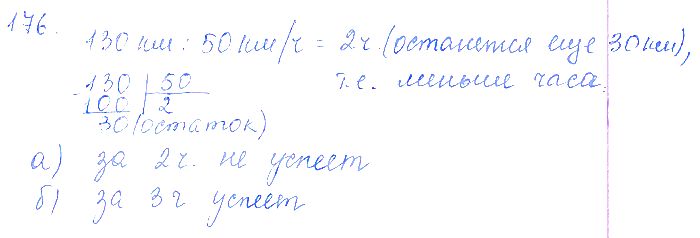 176.
130 км : 50 км/ч = 2 ч. (останется еще 30 км),
130 | 50 т.е. меньше часа.
100 | 2
30 (остаток)
а) за 2 ч. не успеет
б) за 3 ч успеет